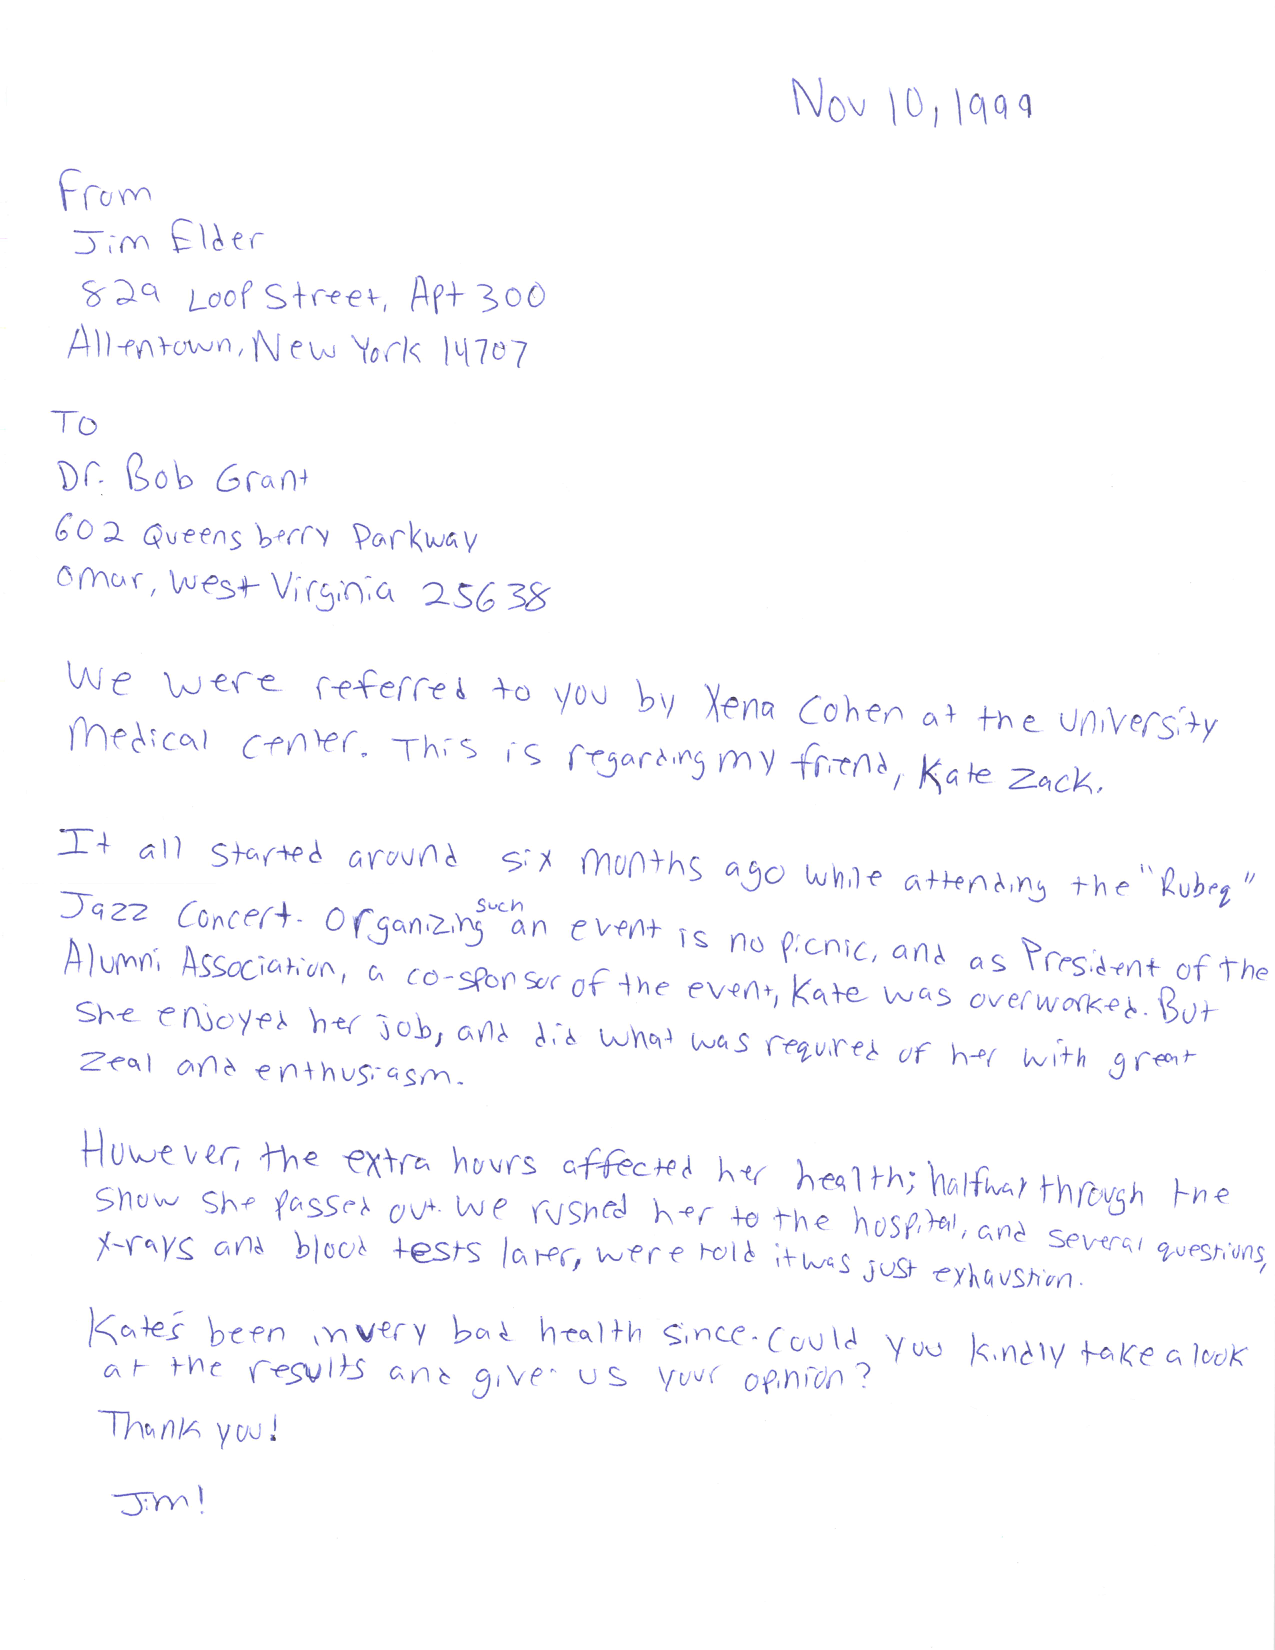 Nov 10, 1999
From
Jim Elder
829 Loop Street, Apt 300
Allentown, New York 14707
To
Dr. Bob Grant
602 Queensberry Parkway
Omar, West Virginia 25638
We were referred to you by Xena Cohen at the University
Medical Center. This is regarding my friend, Kate Zack.
It all started around six months ago while attending the "Rubeq"
Jazz Concert. Organizing such an event is no picnic, and as President of the
Alumni Association, a co-sponsor of the event, Kate was overworked. But
she enjoyed her job, and did what was required of her with great
zeal and enthusiasm.
However, the extra hours affected her health; halfway through the
show she passed out. We rushed her to the hospital, and several questions,
x-rays and blood tests later, were told it was just exhaustion.
Kate's been in very bad health since. Could you kindly take a look
at the results and give us your opinion?
Thank you!
Jim!